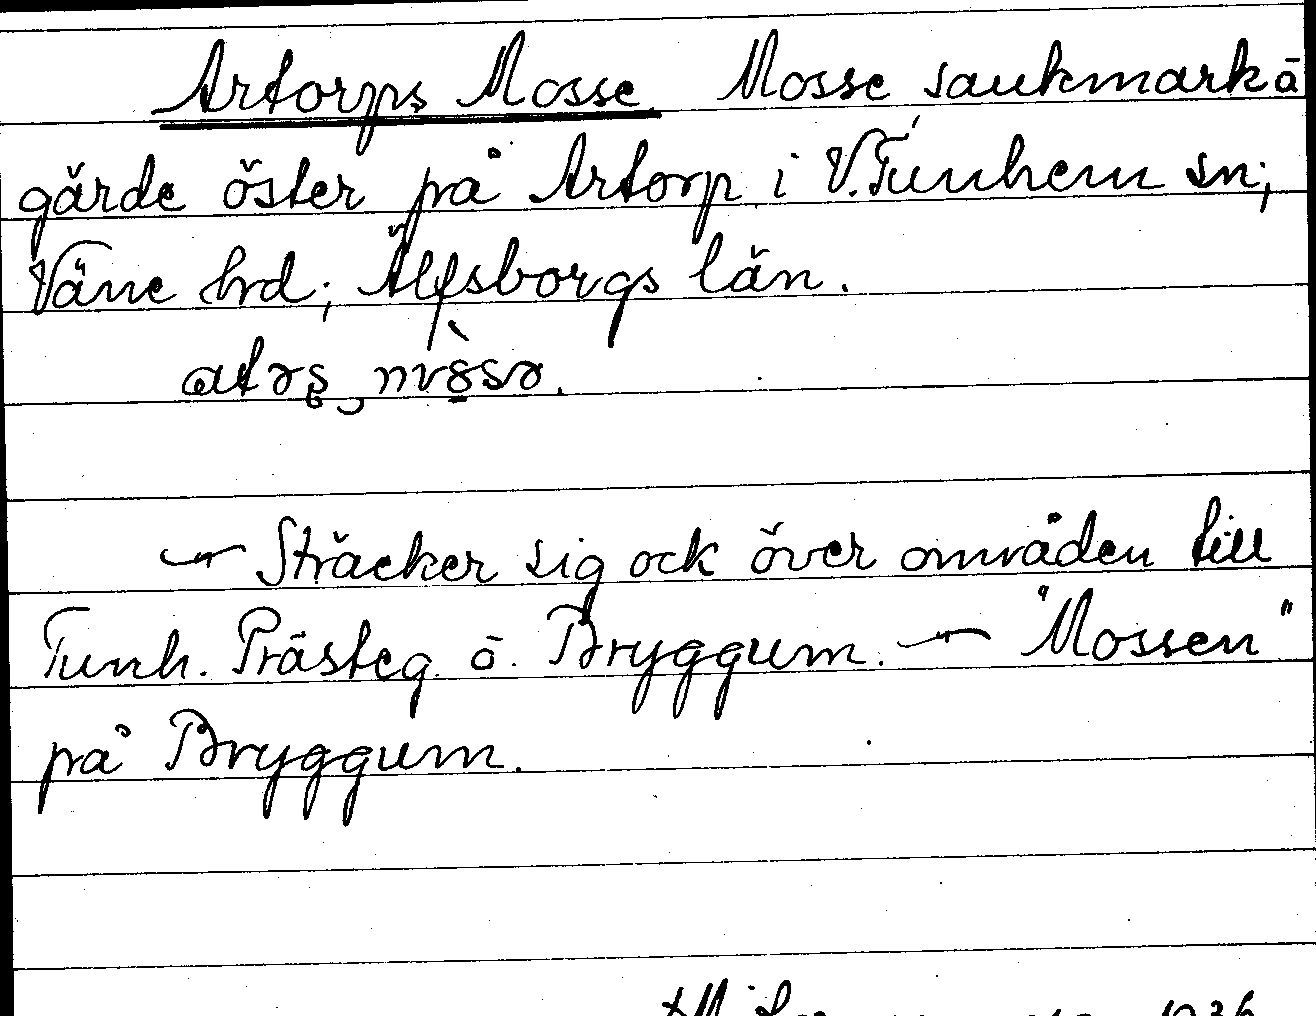 Artorps Mosse. Mosse sankmark å
gärde öster på Artorp i V. Tunhem sn;
Väne hrd; Älfsborgs län.
Sträcker sig ock över områden till
Tunh. Prästeg. o. Bryggum. — "Mossen"
på Bryggum.
1936